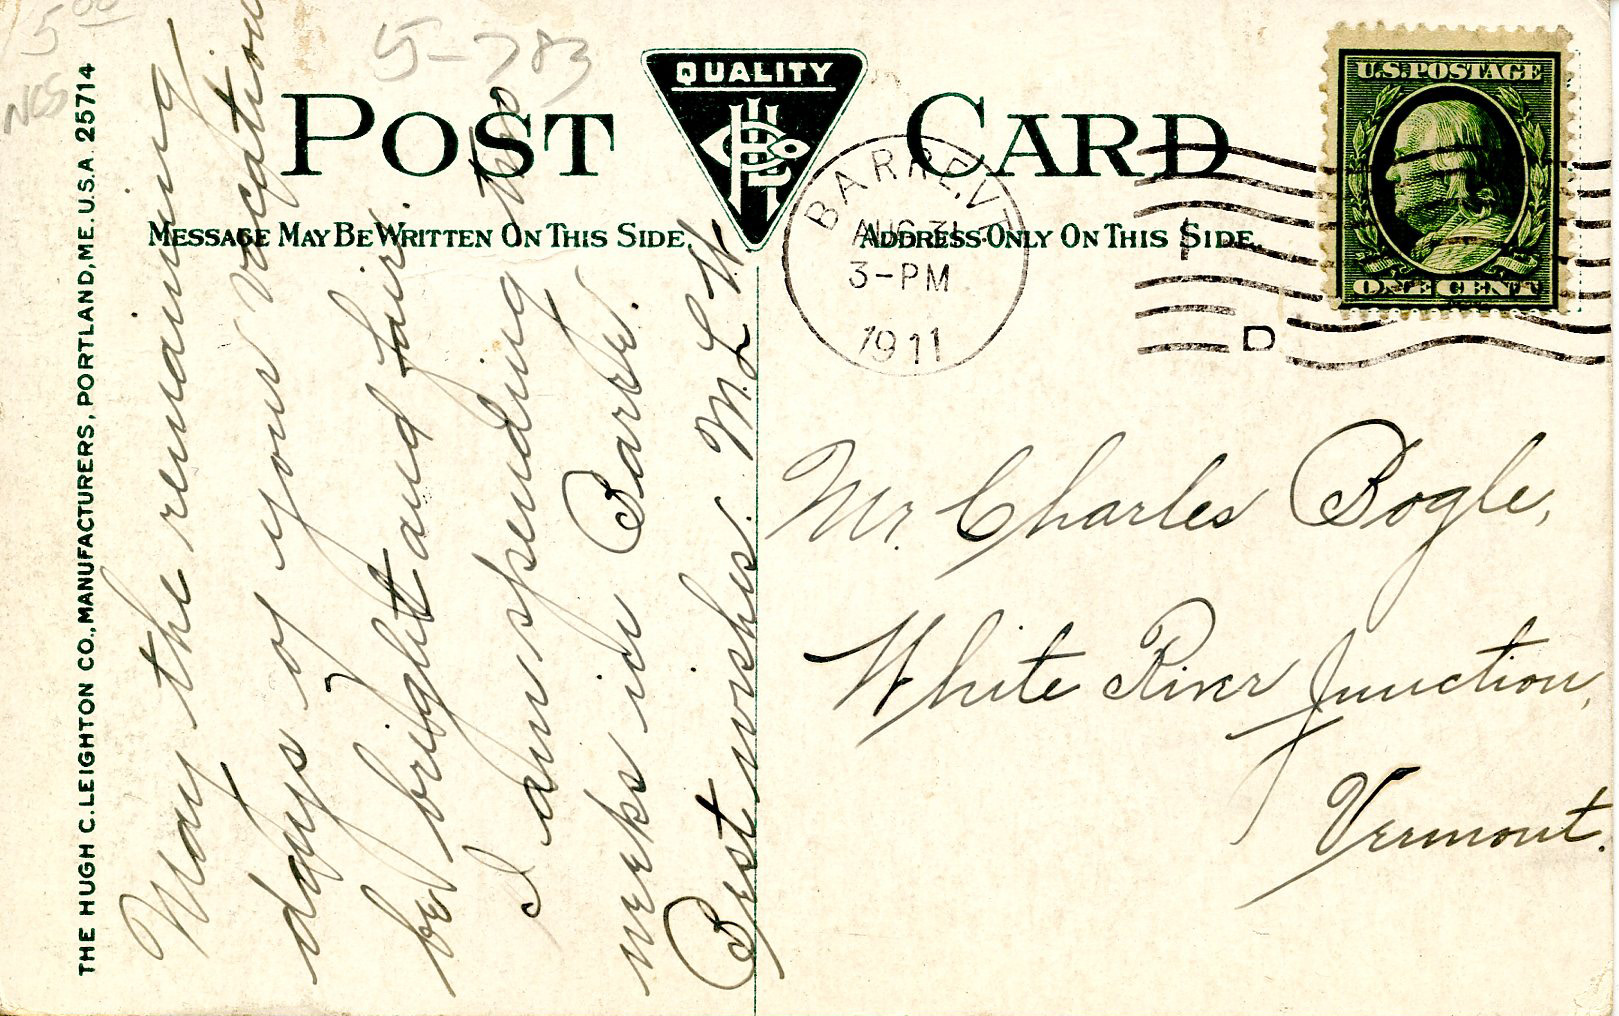 5.00
NCS
5-783
QUALITY
POST CARD
MESSAGE MAY BE WRITTEN ON THIS SIDE.
ADDRESS ONLY ON THIS SIDE.
THE HUGH C. LEIGHTON CO., MANUFACTURERS, PORTLAND, ME. U.S.A. 25714
BARRE, VT
AUG 31
3-PM
1911
D
U.S. POSTAGE
ONE CENT
May the remaining
days of your vacation
be bright and fair.
I am spending two
weeks in Barre.
Best wishes. M. L. W.
Mr. Charles Bogle,
White River Junction,
Vermont.